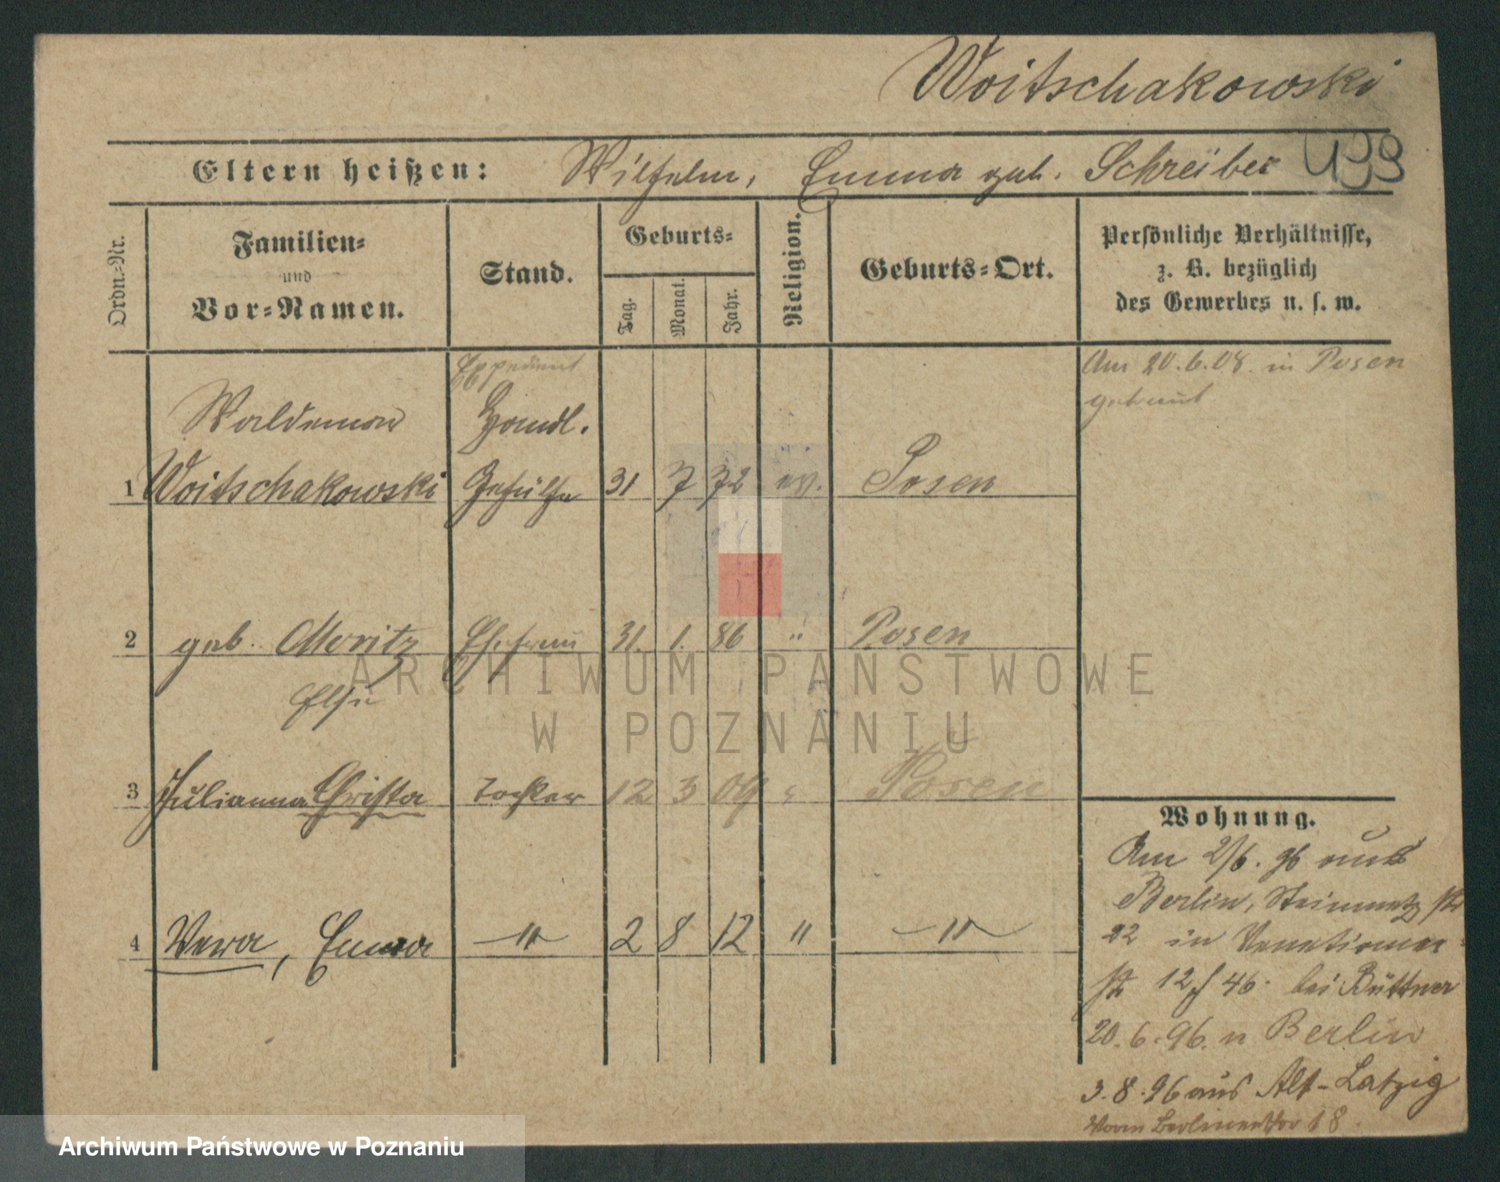 Woitschakowski
Eltern heißen: Wilhelm, Emma geb. Schreiber 499
Ordn.-Nr.
Familien-
und
Vor-Namen.
Stand.
Geburts-
Tag.
Monat.
Jahr.
Religion.
Geburts-Ort.
Persönliche Verhältnisse,
z. B. bezüglich
des Gewerbes u. s. w.
Expedient
Am 20.6.08. in Posen
getraut
Waldemar Handl.
1 Woitschakowski Gehülfe 31 7 72 ev. Posen
2 geb. Moritz Ehefrau 31. 1. 86 " Posen
Else
3 Julianna Christa Tochter 12 3 09 " Posen
4 Vera, Emma " 2 8 12 " "
Wohnung.
Am 2/6. 96 aus
Berlin, Steinmetz str
22 in Venetianer
str 12 46. bei Büttner
20.6.96. n Berlin
3.8.96 aus Alt-Latzig
Vorm Berlinerthor 18.
ARCHIWUM PAŃSTWOWE
W POZNANIU
Archiwum Państwowe w Poznaniu